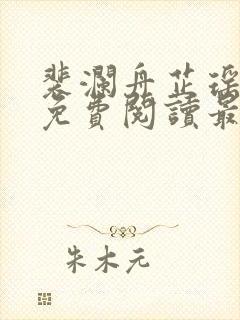 裴瀾舟芷瑤
免費閱讀最
朱木元